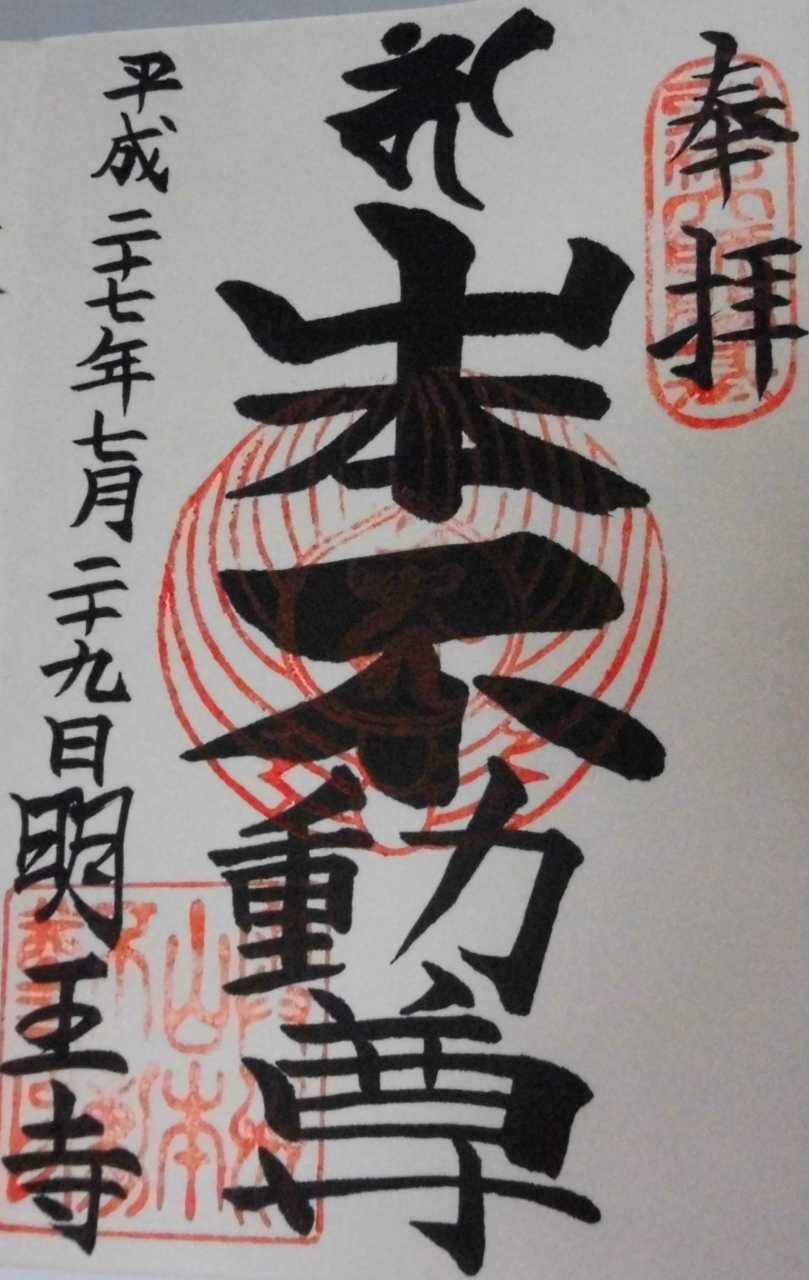 奉拝
山本不動尊
平成二十七年七月二十九日 明王寺